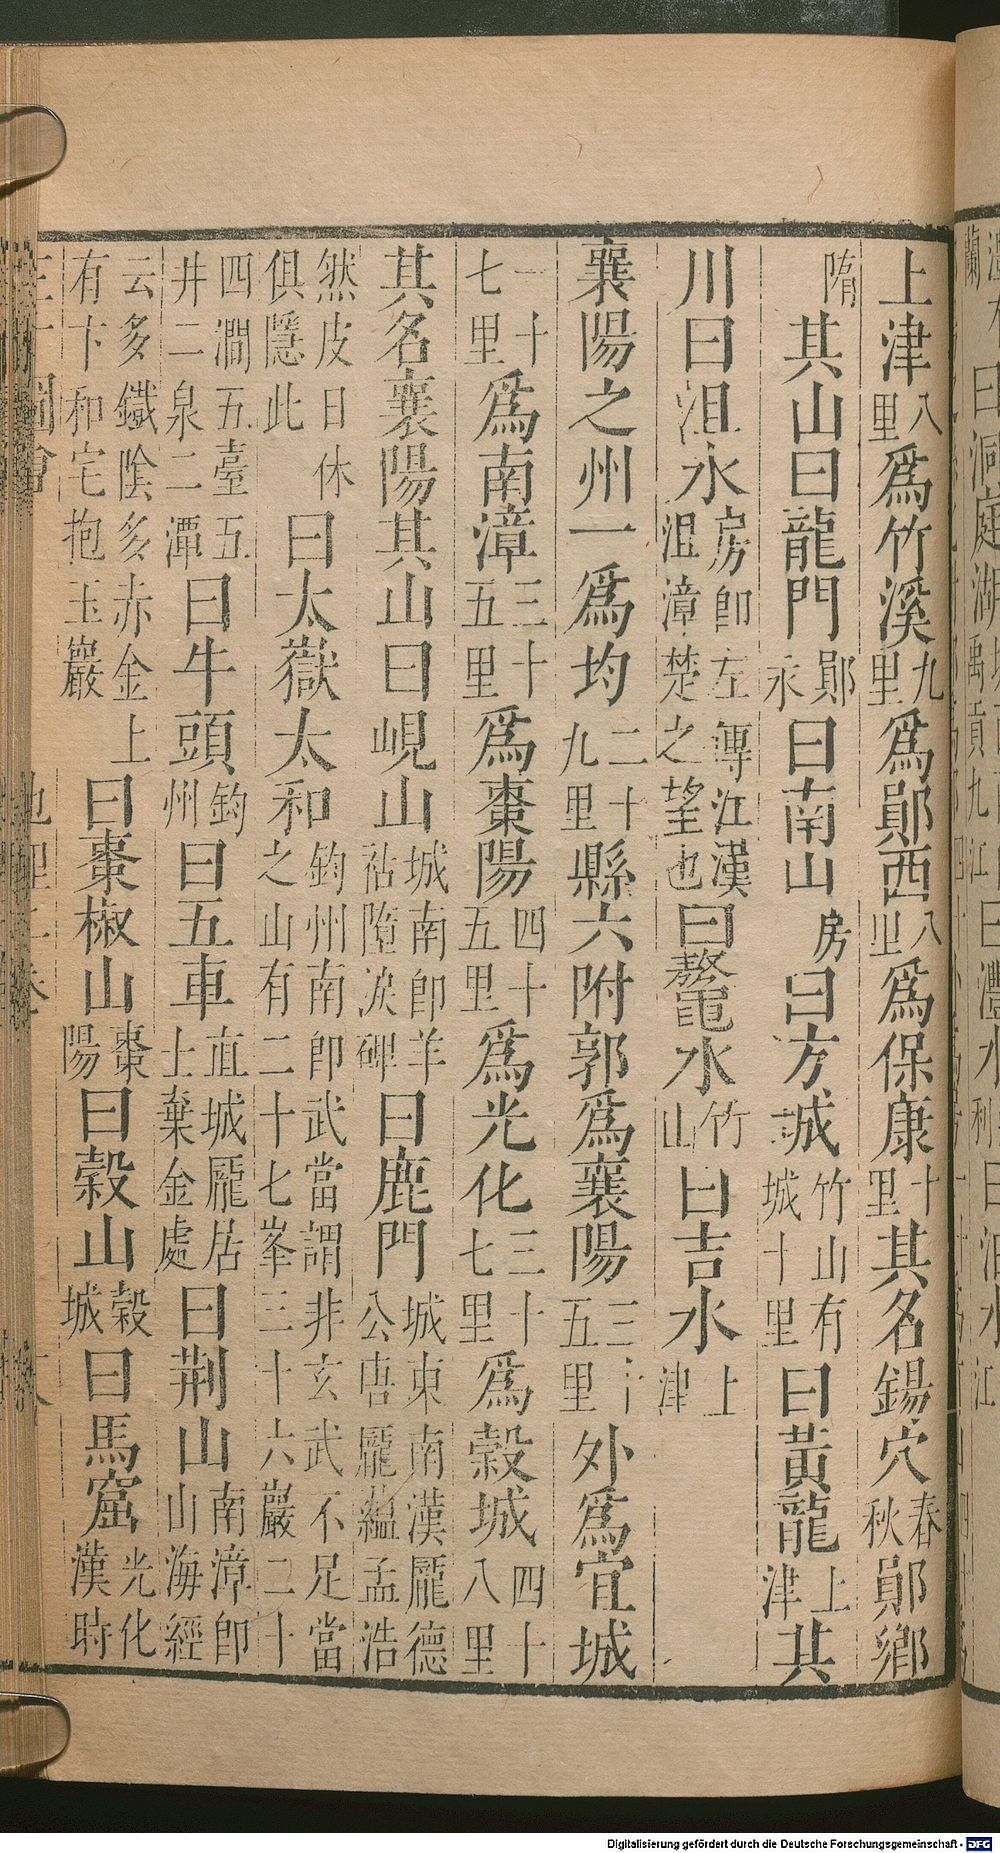 上津八里爲竹溪九里爲鄖西八里爲保康十里其名錫穴春秋鄖鄉
隋其山曰龍門鄖永曰南山房曰方城竹山有城十里曰黃龍上津其
川曰沮水房卽左傳江漢沮漳楚之望也曰鼇水竹山曰吉水上津
襄陽之州一爲均二十九里縣六附郭爲襄陽三十五里外爲宜城
一十七里爲南漳三十五里爲棗陽四十五里爲光化三十七里爲穀城四十八里
其名襄陽其山曰峴山城南卽羊祜墮淚碑曰鹿門城東南漢龐德公唐龐蘊孟浩
然皮日休俱隱此曰太嶽太和鈞州南卽武當謂非玄武不足當之山有二十七峯三十六巖二十
四澗五臺五井二泉二潭曰牛頭鈞州曰五車直城龐居士棄金處曰荆山南漳卽山海經
云多鐵陰多赤金上有卞和宅抱玉巖曰棗椒山棗陽曰穀山穀城曰馬窟光化漢時
Digitalisierung gefördert durch die Deutsche Forschungsgemeinschaft - DFG